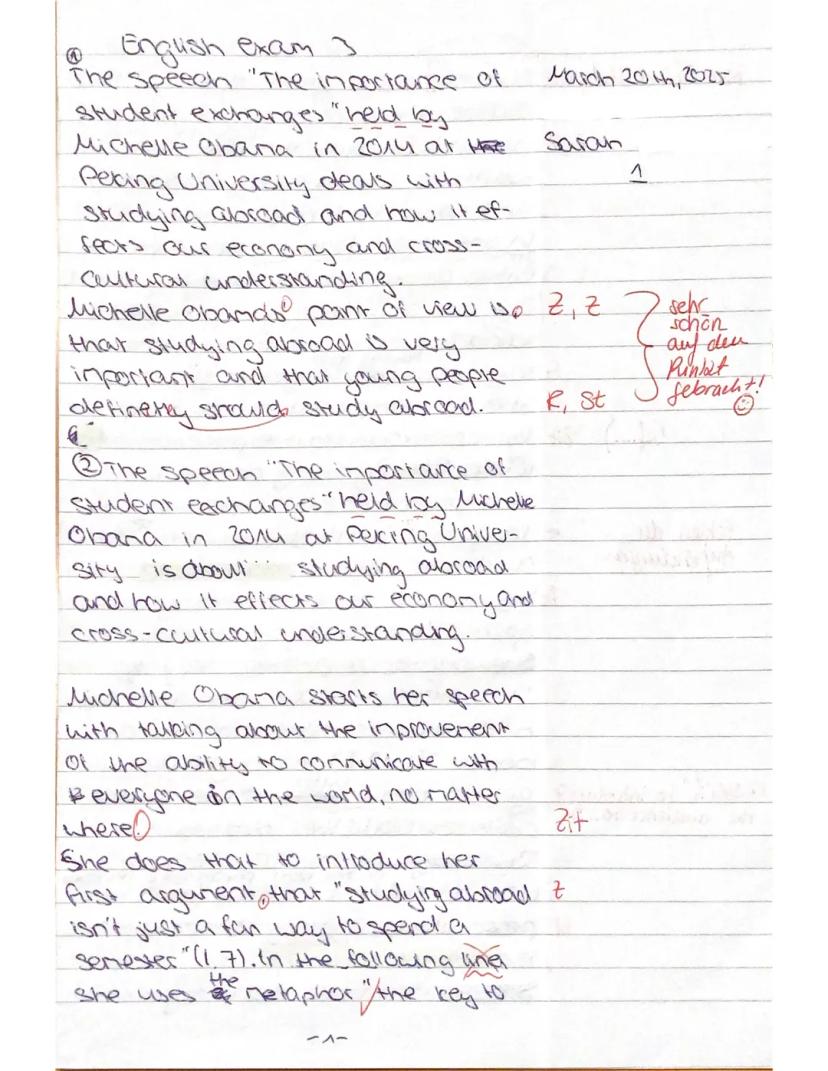 English exam 3
① The speech "The importance of March 20th, 2025
student exchanges" held by
Michelle Obama in 2014 at the Sarah
Peking University deals with 1
studying abroad and how it ef-
fects our economy and cross-
cultural understanding.
Michelle Obama's point of view is, Z, Z sehr
that studying abroad is very schön
important and that young people auf den
definetly should study abroad. R, St Punkt gebracht! ☺
② The speech "The importance of
student exchanges" held by Michelle
Obama in 2014 at Peking Univer-
sity is about studying abroad
and how it effects our economy and
cross-cultural understanding.
Michelle Obama starts her speech
with talking about the improvement
of the ability to communicate with
everyone in the world, no matter
where. Zit
She does that to introduce her
first argument, that "studying abroad Z
isn't just a fun way to spend a
semester" (l. 7). In the following lines
she uses the metaphor "the key to
-1-